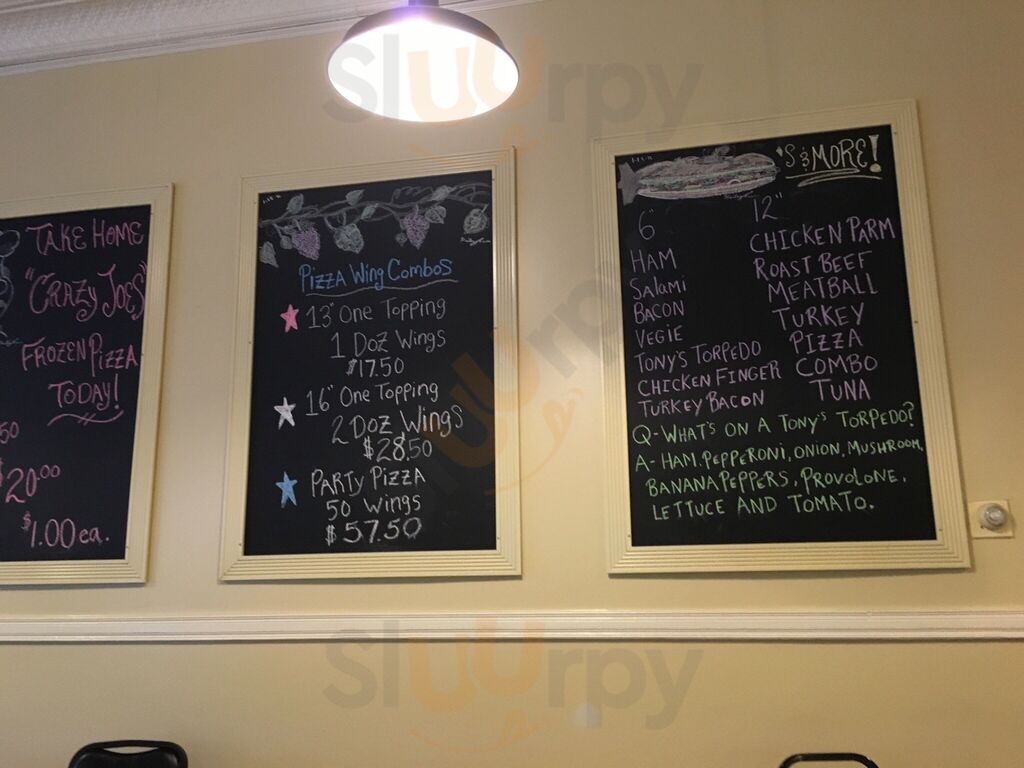 TAKE HOME
"CRAZY JOES"
FROZEN PIZZA
TODAY!
50
$20.00
$1.00 ea.
PIZZA WING COMBOS
13" ONE TOPPING
1 DOZ WINGS
$17.50
16" ONE TOPPING
2 DOZ WINGS
$28.50
PARTY PIZZA
50 WINGS
$57.50
'S & MORE!
6"
HAM
SALAMI
BACON
VEGIE
TONY'S TORPEDO
CHICKEN FINGER
TURKEY BACON
12"
CHICKEN PARM
ROAST BEEF
MEATBALL
TURKEY
PIZZA
COMBO
TUNA
Q-WHAT'S ON A TONY'S TORPEDO?
A-HAM, PEPPERONI, ONION, MUSHROOM,
BANANA PEPPERS, PROVOLONE,
LETTUCE AND TOMATO.
Sluurpy
Sluurpy
Sluurpy